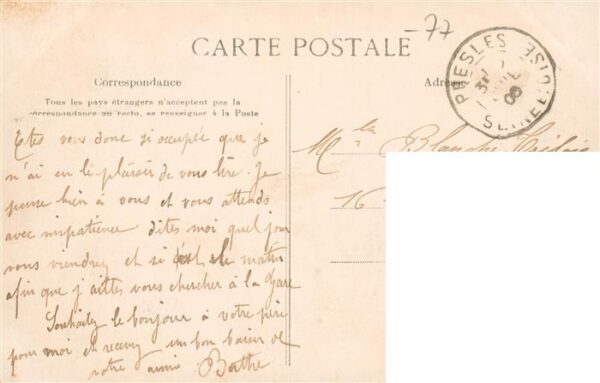 -77
CARTE POSTALE
Correspondance
Tous les pays étrangers n'acceptent pas la
correspondance au recto, se renseigner à la Poste
Adres
PRESLES
SEINE-ET-OISE
Etes vous donc si occupée que je
n'ai eu le plaisir de vous lire. Je
pense bien à vous et vous attends
avec impatience dites moi quel jour
vous viendrez et si c'est le matin
afin que j'aille vous chercher à la Gare
Souhaitez le bonjour à votre père
pour moi et recevez un bon baiser de
votre amie Berthe
Mlle Blanche
16